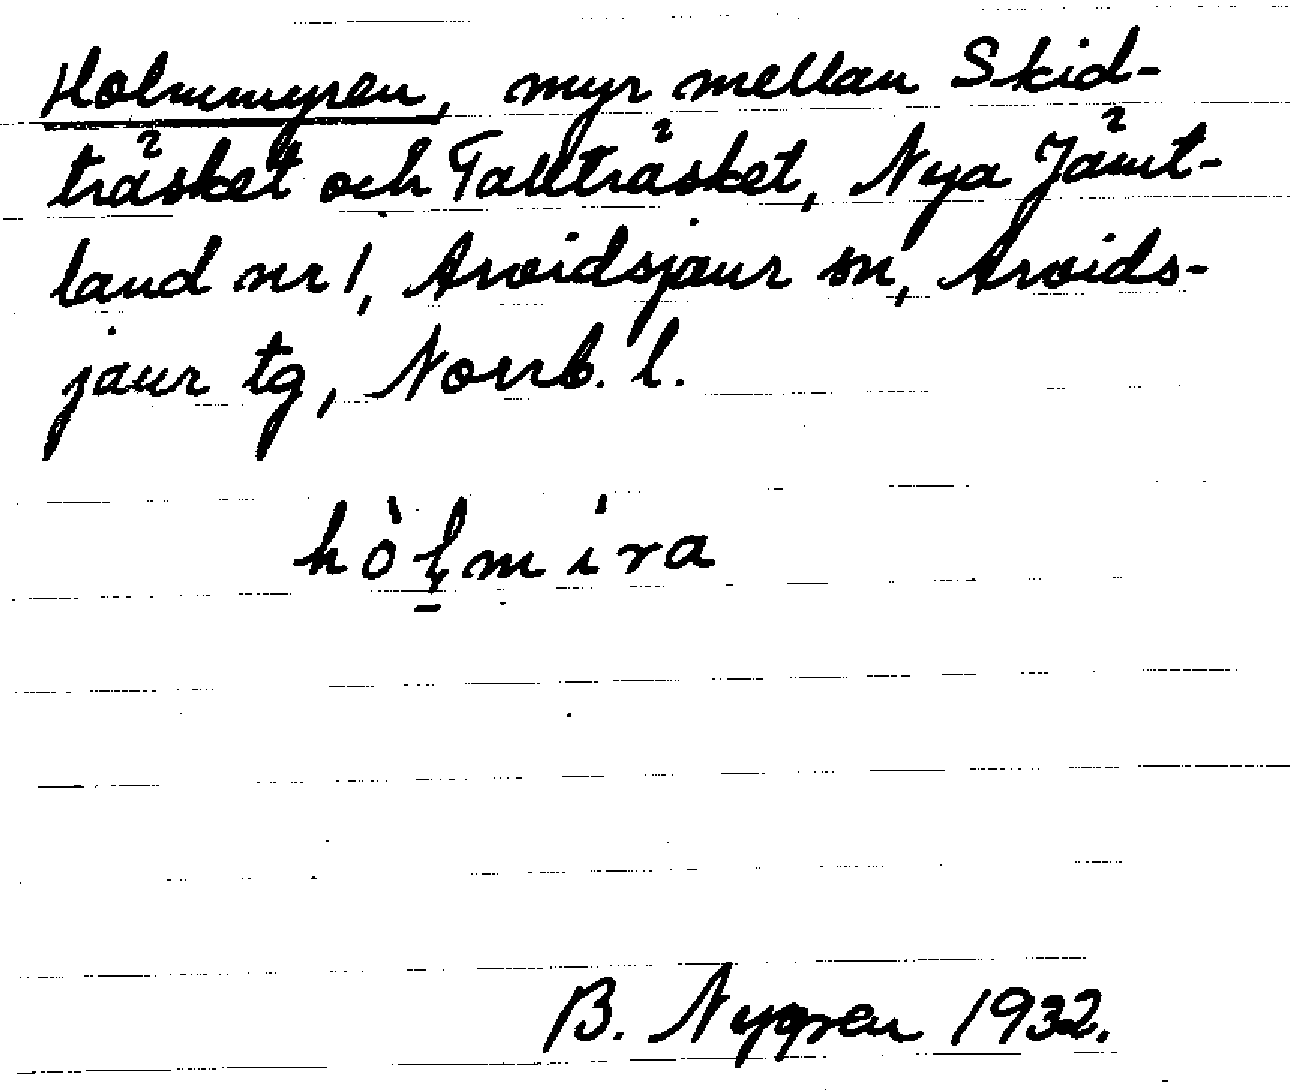 Holmmyren, myr mellan Skid-
träsket och Tallträsket, Nya Jämt-
land nr 1, Arvidsjaur sn, Arvids-
jaur tg, Norrb. l.
hòl̥mı̇́ra
B. Nygren 1932.